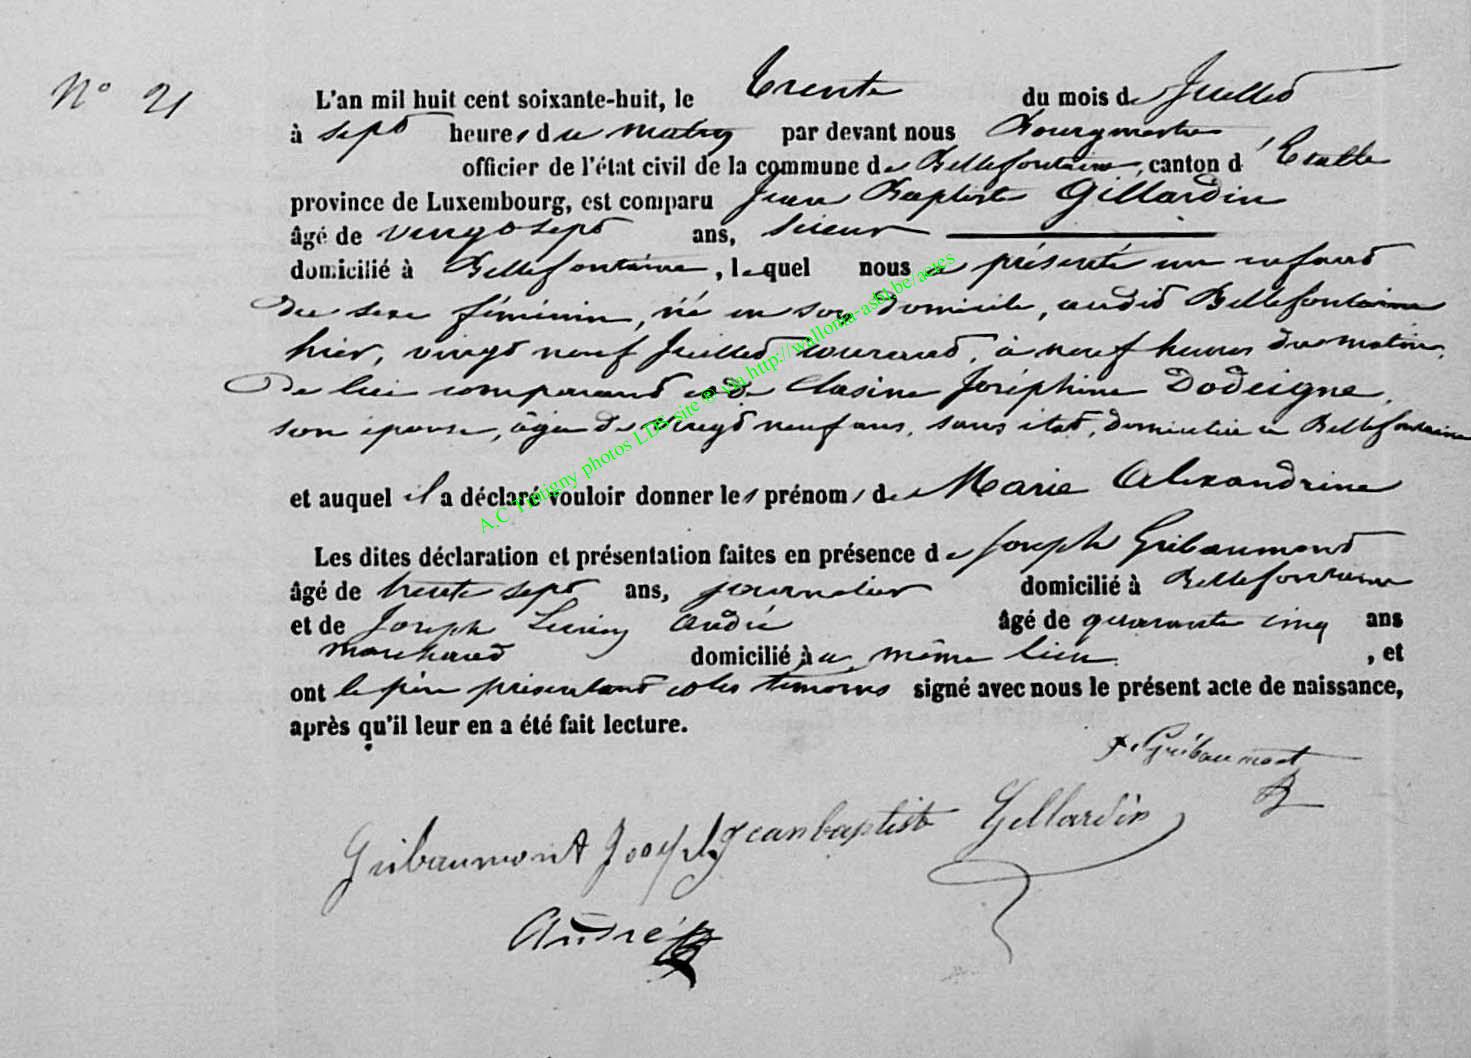 N° 21
L'an mil huit cent soixante-huit, le trente du mois de Juillet
à sept heures du matin par devant nous Bourgmestre
officier de l'état civil de la commune de Bellefontaine, canton d'Etalle
province de Luxembourg, est comparu Jean Baptiste Gillardin
âgé de vingt sept ans, scieur
domicilié à Bellefontaine, lequel nous a présenté un enfant
du sexe féminin, né en son domicile, audit Bellefontaine
hier, vingt neuf Juillet courant, à neuf heures du matin,
De lui comparant et de Joséphine Dodeigne,
son épouse, âgée de vingt neuf ans, sans état, domiciliée à Bellefontaine
et auquel il a déclaré vouloir donner les prénoms de Marie Alexandrine
Les dites déclaration et présentation faites en présence de Joseph Gribaumont
âgé de trente sept ans, journalier domicilié à Bellefontaine
et de Joseph André âgé de quarante cinq ans
marchand domicilié au même lieu , et
ont le père présentant et les témoins signé avec nous le présent acte de naissance,
après qu'il leur en a été fait lecture.
Gribaumont
Gribaumont Joseph Jeanbaptiste Gillardin
André
A.C Tintigny photos LDS site © via http://wallonia-asbl.be/actes